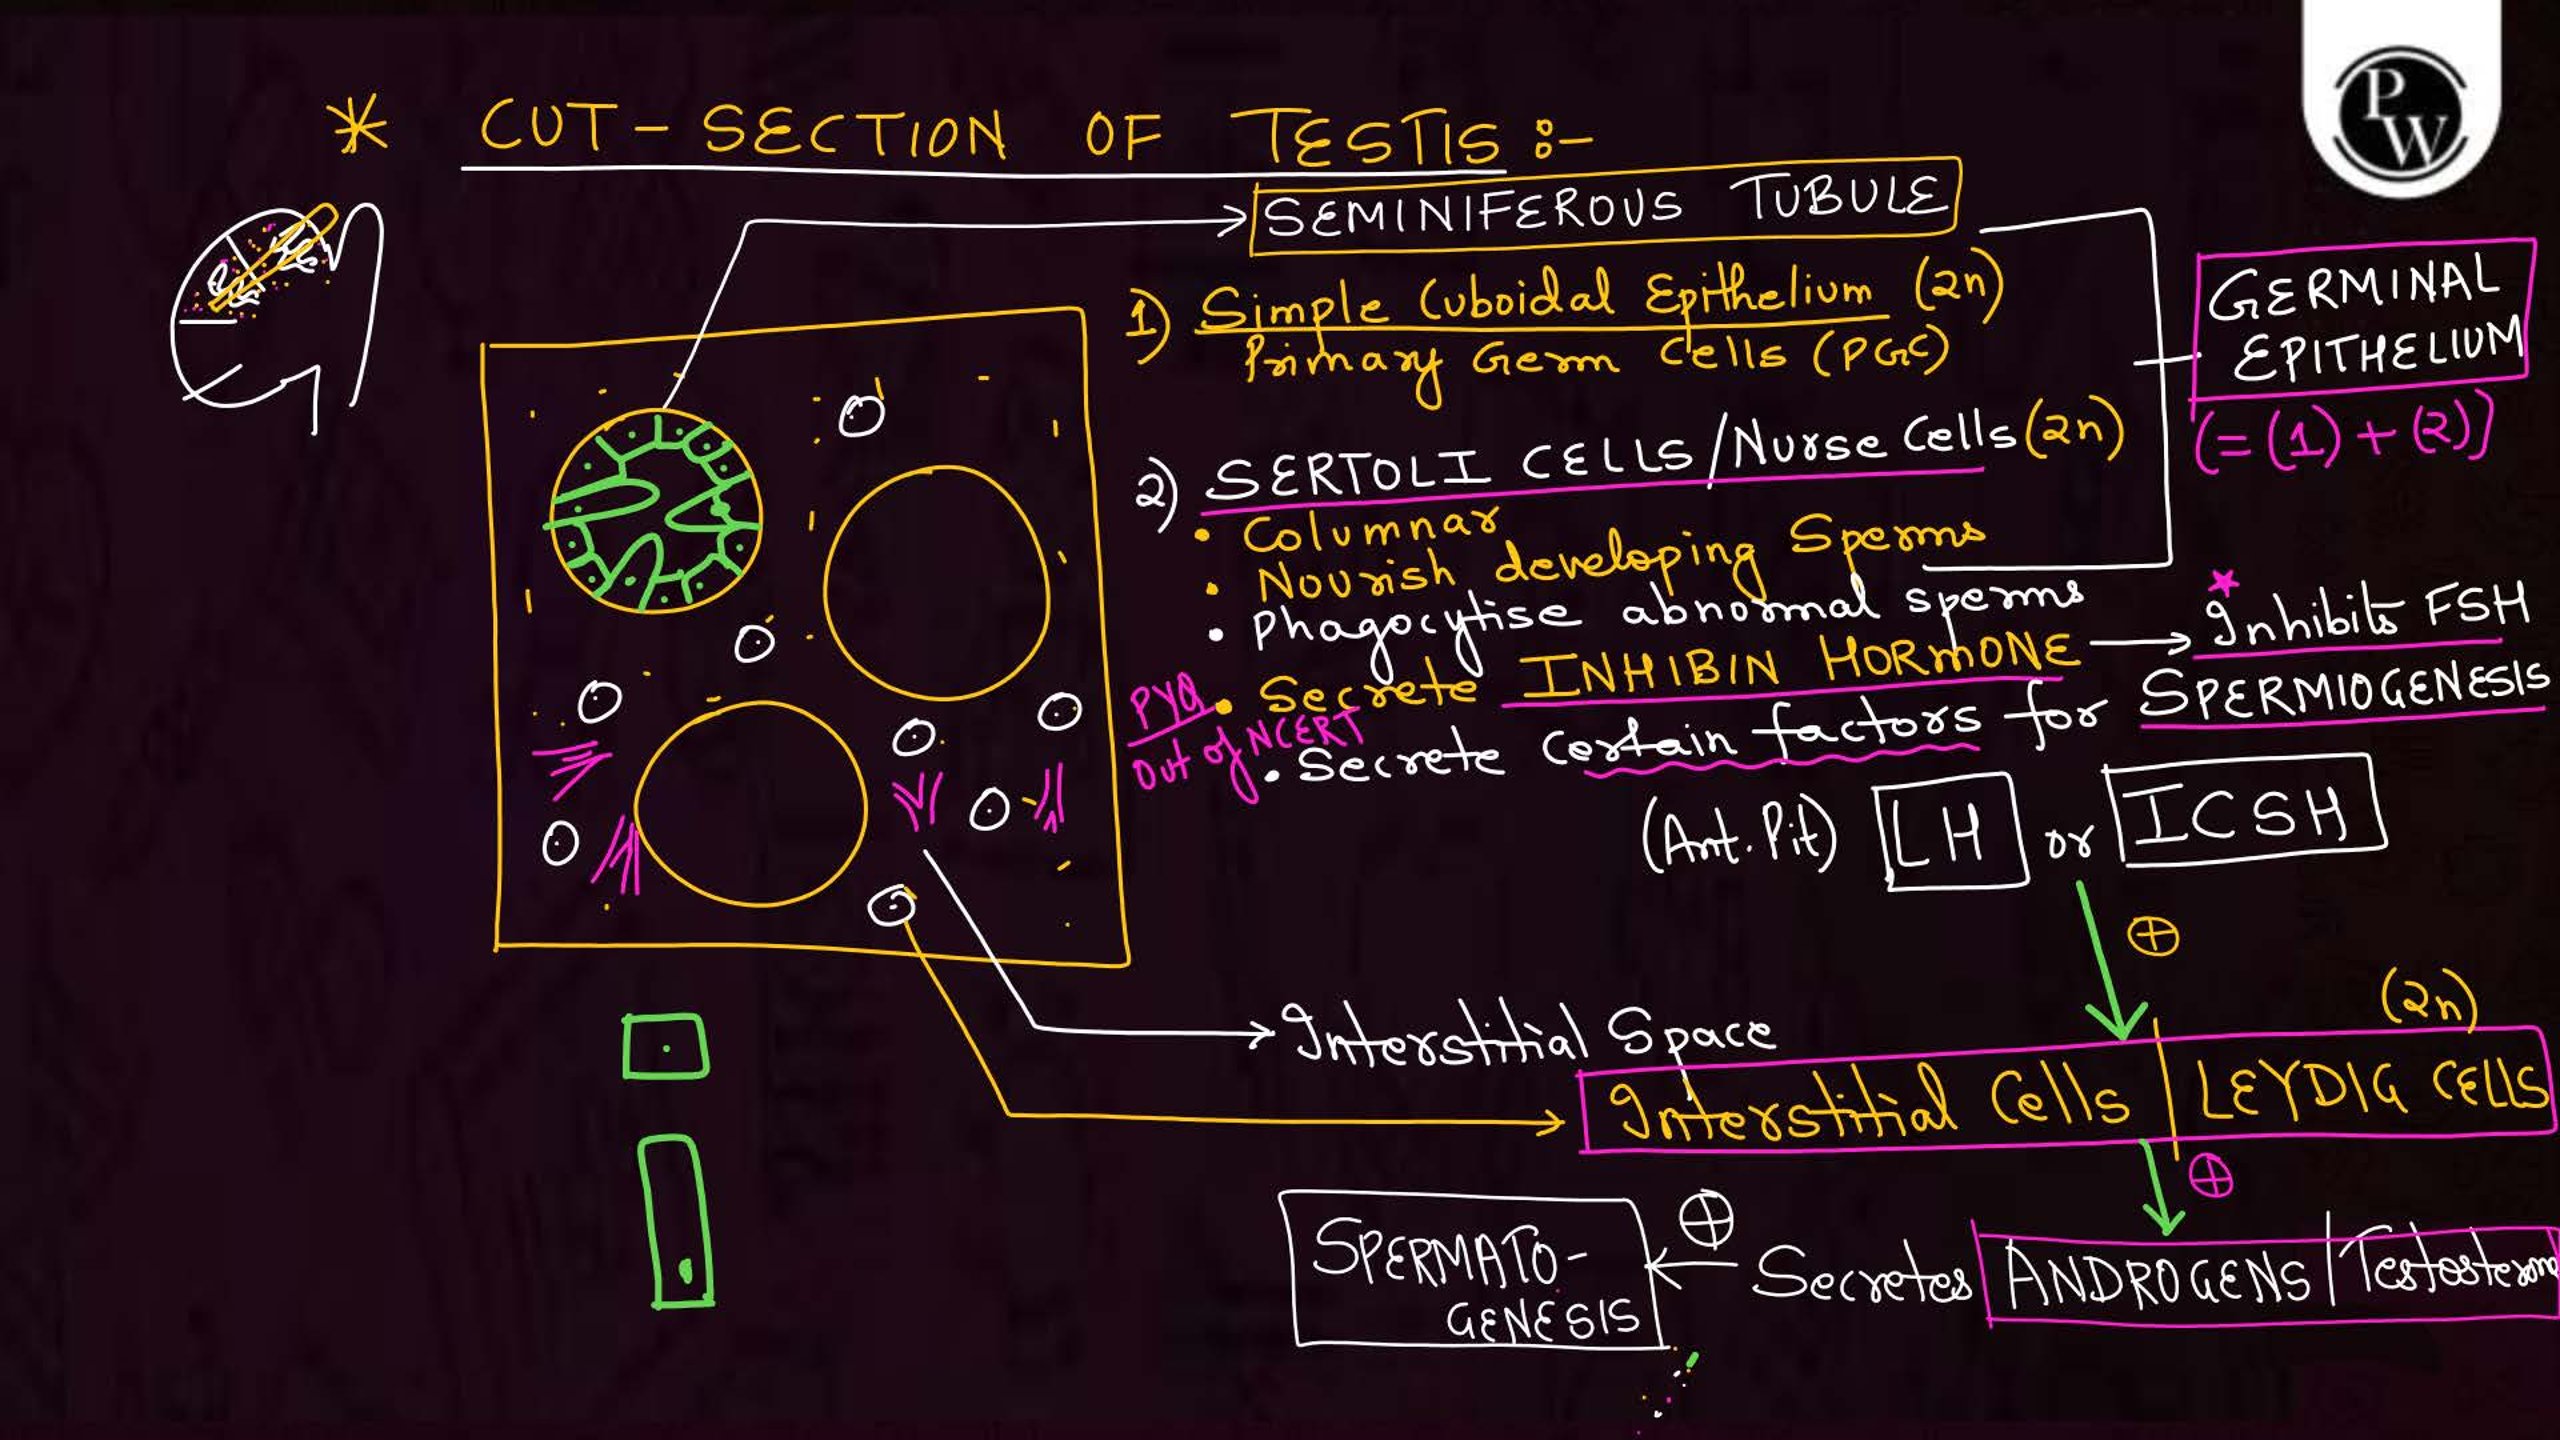 * CUT-SECTION OF TESTIS :-
PW
SEMINIFEROUS TUBULE
1) Simple Cuboidal Epithelium (2n)
Primary Germ Cells (PGC)
GERMINAL
EPITHELIUM
(= (1) + (2))
2) SERTOLI CELLS/Nurse Cells (2n)
• Columnar
• Nourish developing Sperms
• Phagocytise abnormal sperms
• Secrete INHIBIN HORMONE → Inhibits FSH
PYQ
Out of NCERT
• Secrete certain factors for SPERMIOGENESIS
(Ant. Pit) LH or ICSH
⊕
Interstitial Space
(2n)
Interstitial Cells | LEYDIG CELLS
⊕
SPERMATO-
GENESIS
⊕
Secretes ANDROGENS/Testosterone